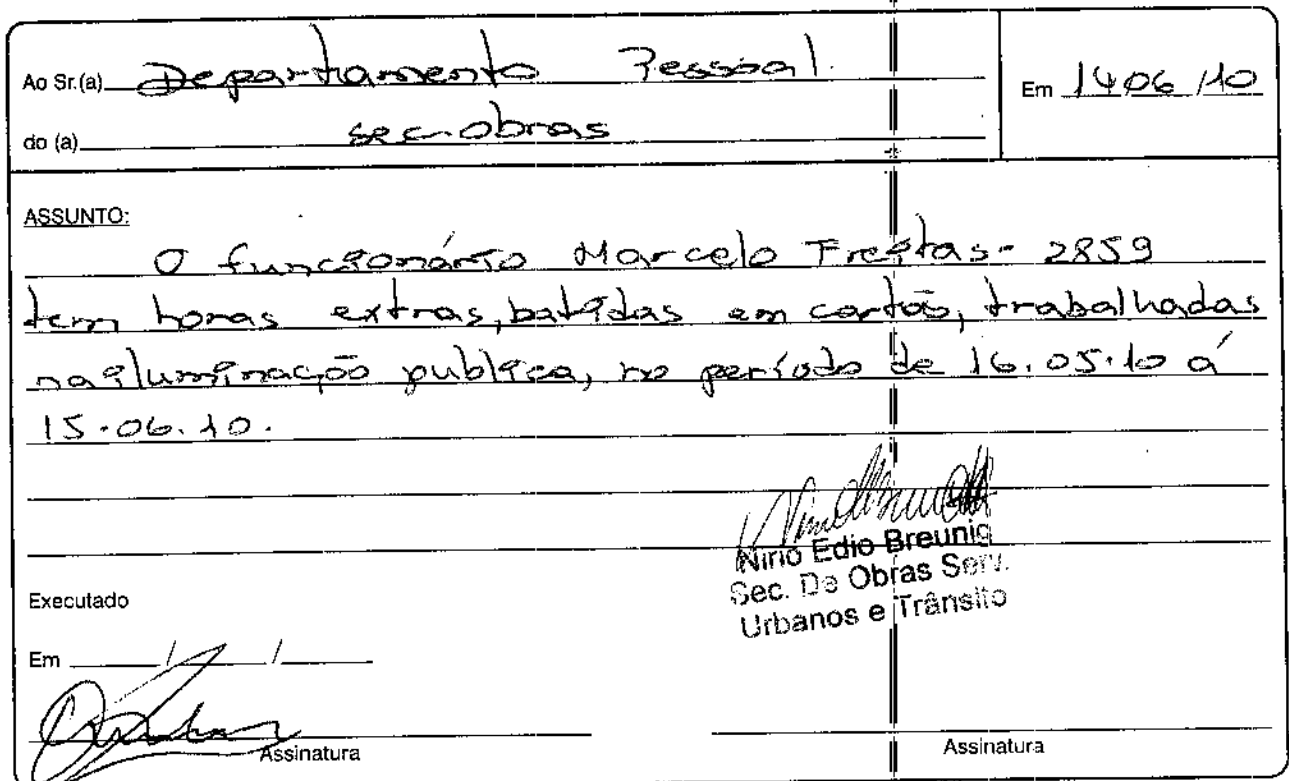 Ao Sr.(a) Departamento Pessoal.
Em 1406/10
do (a) sec. obras
ASSUNTO:
O funcionário Marcelo Freitas - 2859
tem horas extras, batidas em cartão, trabalhadas
na iluminação publica, no período de 16.05.10 á
15.06.10.
Nirio Edio Breunig
Sec. De Obras Serv.
Urbanos e Trânsito
Executado
Em / /
Assinatura
Assinatura